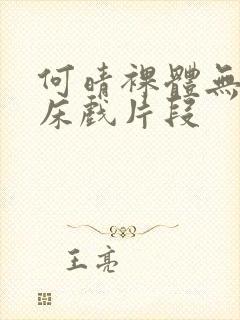 何晴裸體無
床戲片段
王亮